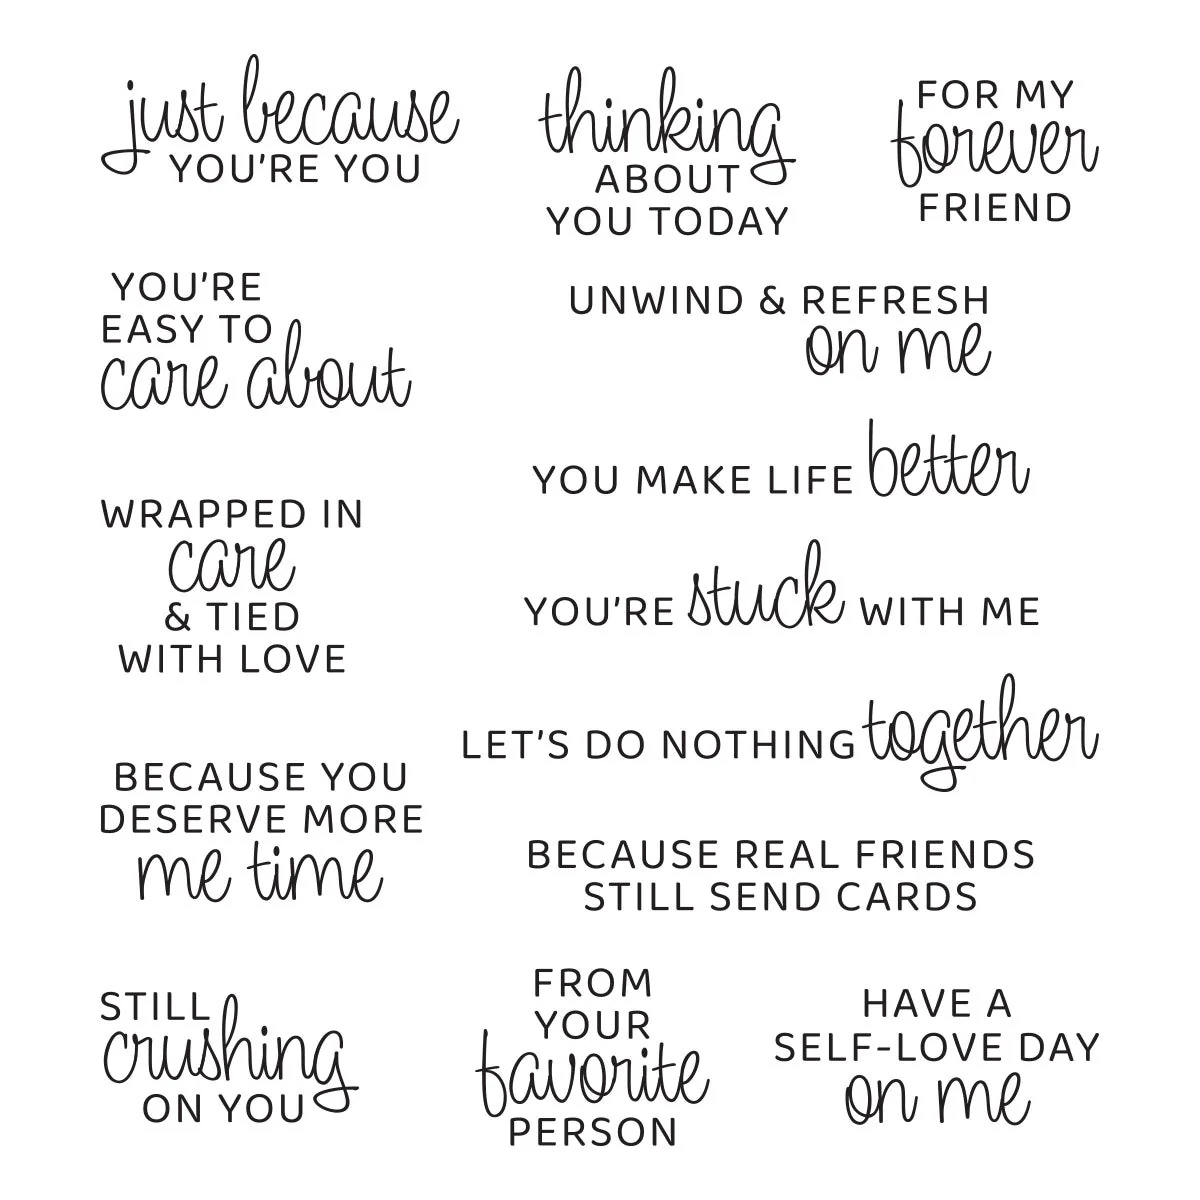 just because
YOU'RE YOU
thinking
ABOUT
YOU TODAY
FOR MY
forever
FRIEND
YOU'RE
EASY TO
care about
UNWIND & REFRESH
on me
YOU MAKE LIFE better
WRAPPED IN
care
& TIED
WITH LOVE
YOU'RE stuck WITH ME
LET'S DO NOTHING together
BECAUSE YOU
DESERVE MORE
me time
BECAUSE REAL FRIENDS
STILL SEND CARDS
STILL
crushing
ON YOU
FROM
YOUR
favorite
PERSON
HAVE A
SELF-LOVE DAY
on me